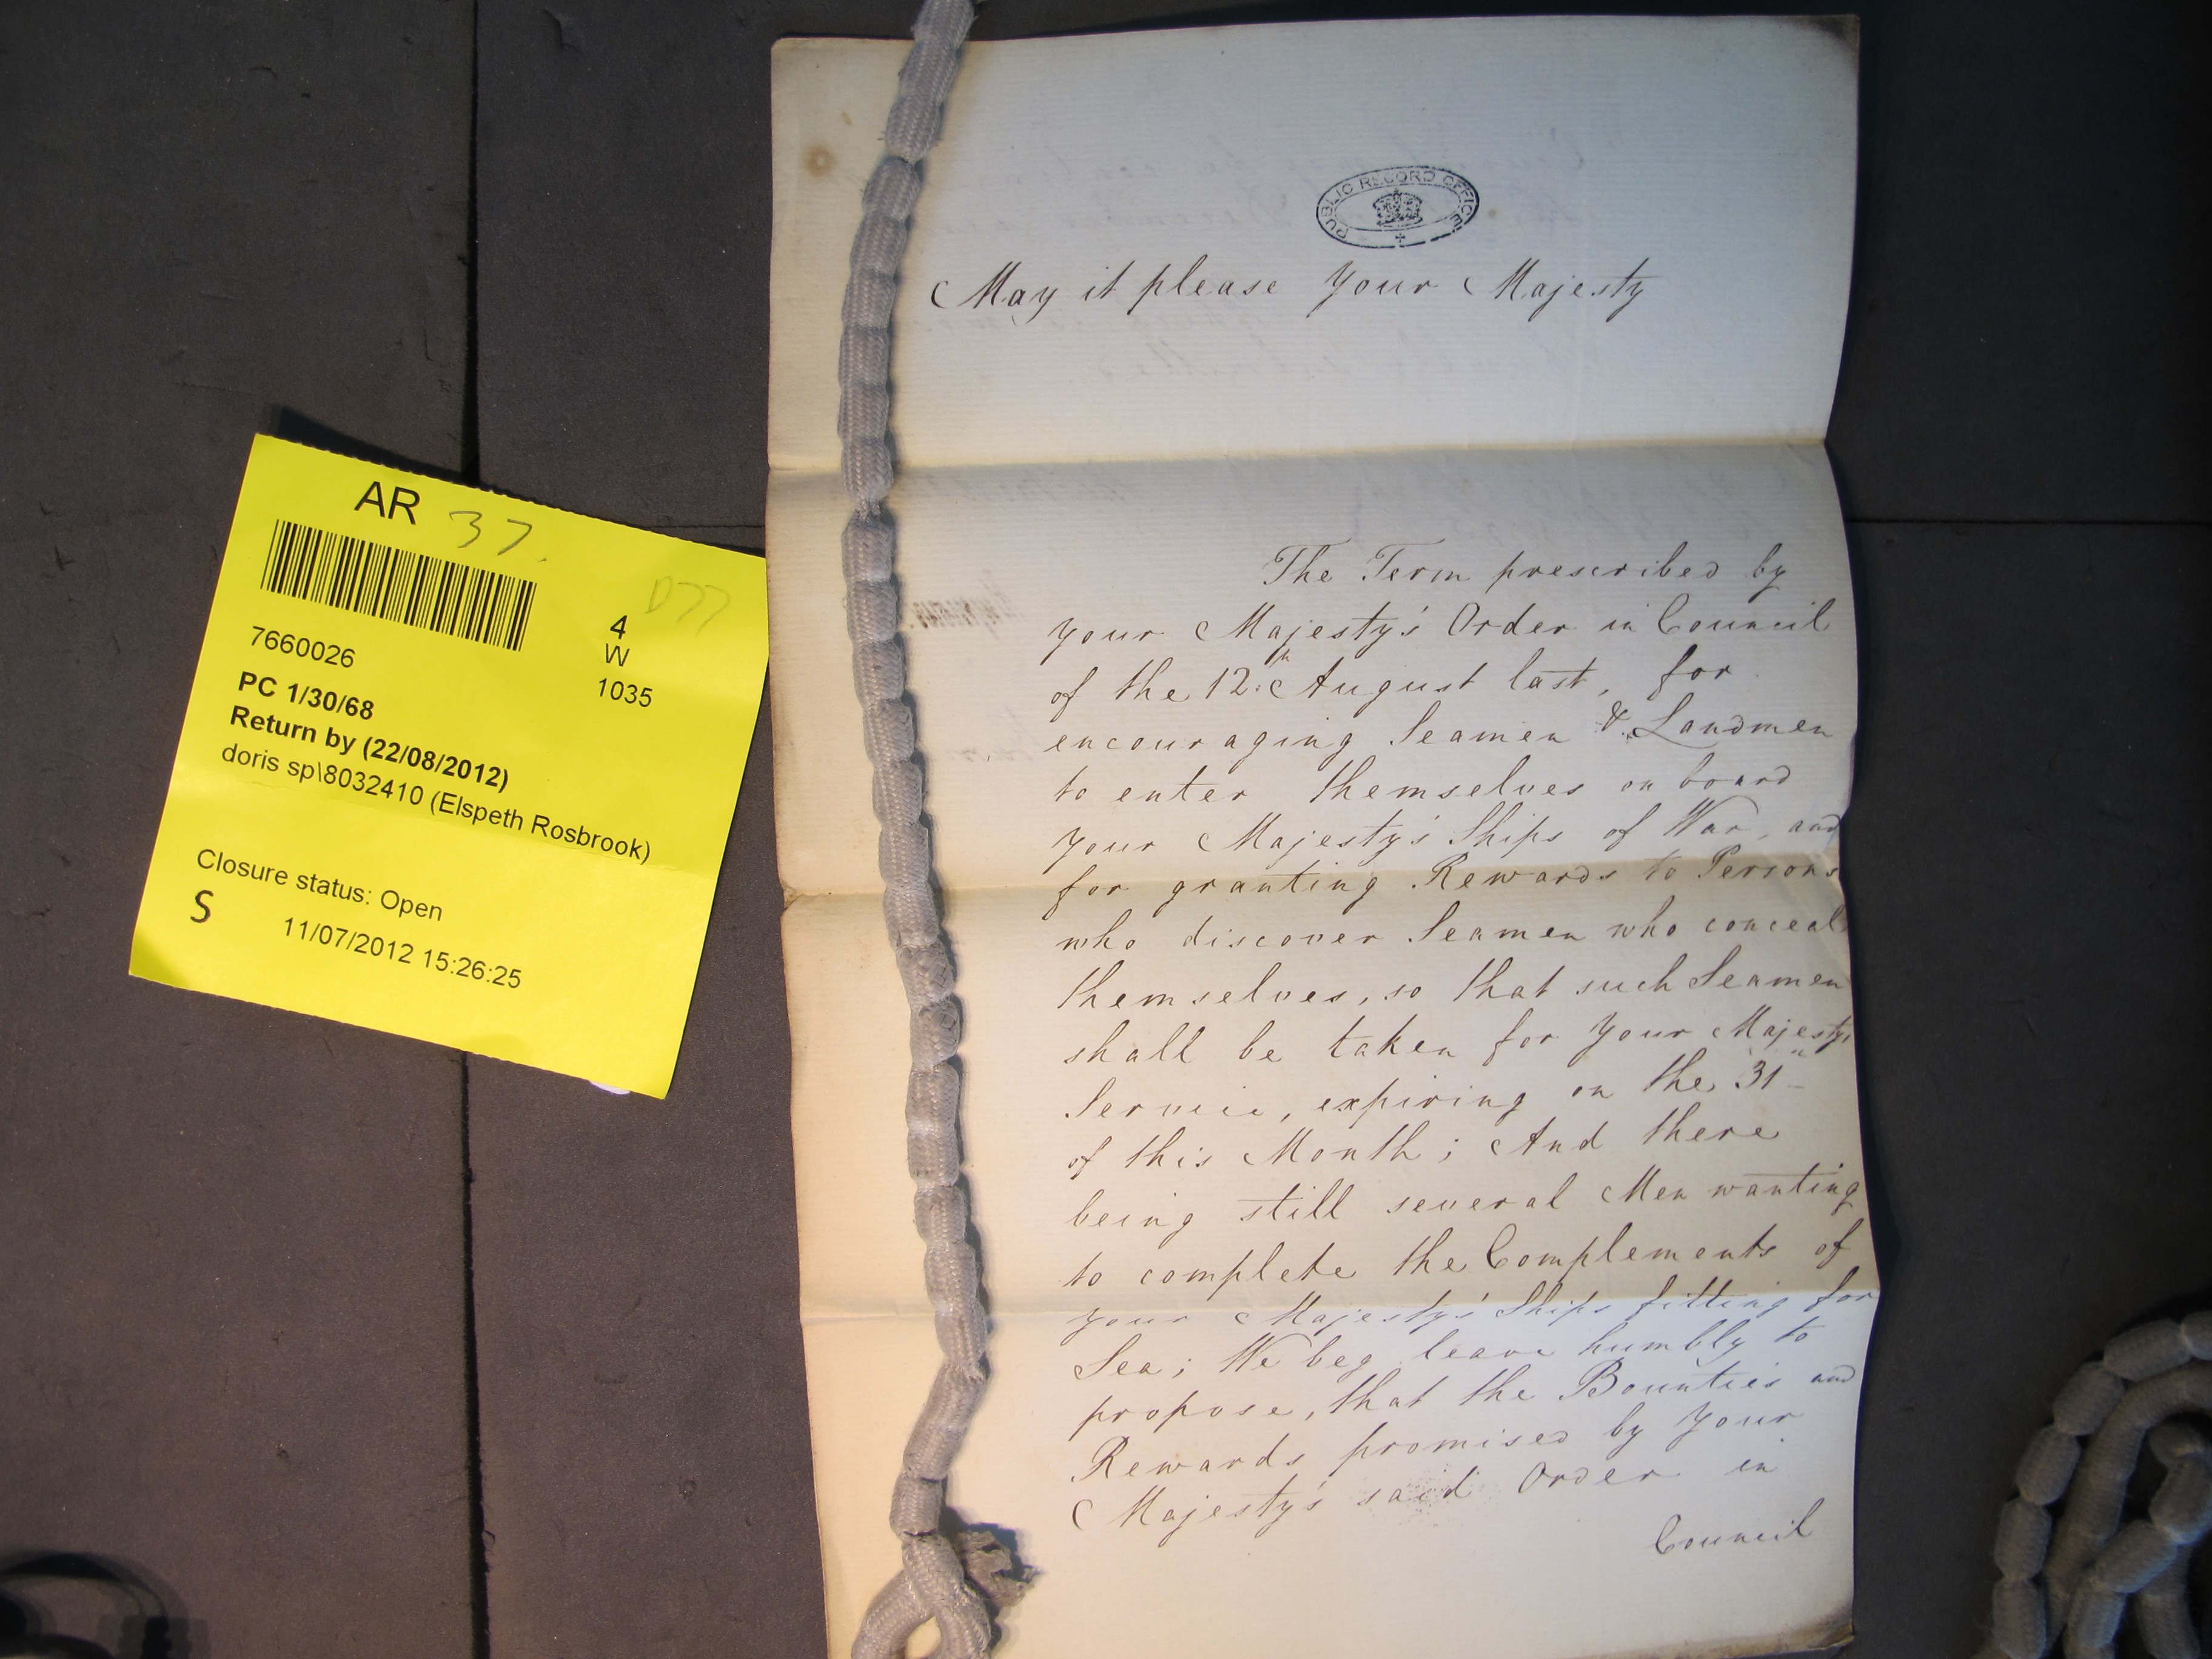 AR 37.
D77
4
W
1035
7660026
PC 1/30/68
Return by (22/08/2012)
doris sp\8032410 (Elspeth Rosbrook)
Closure status: Open
S 11/07/2012 15:26:25
PUBLIC RECORD OFFICE
May it please Your Majesty
The Term prescribed by
your Majesty's Order in Council
of the 12th August last, for
encouraging Seamen & Landmen
to enter themselves on board
your Majesty's Ships of War, and
for granting Rewards to Persons
who discover Seamen who conceal
themselves, so that such Seamen
shall be taken for Your Majestys
Service, expiring on the 31
of this Month; And there
being still several Men wanting
to complete the Complements of
your Majesty's Ships fitting for
Sea; We beg leave humbly to
propose, that the Bounties and
Rewards promised by Your
Majesty's said Order in
Council